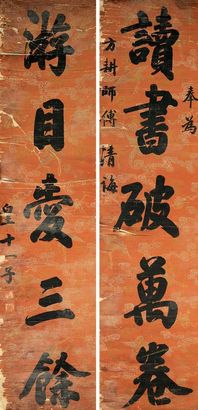 奉為
讀書破萬卷
方耕師傅清誨
游目愛三餘
皇十一子